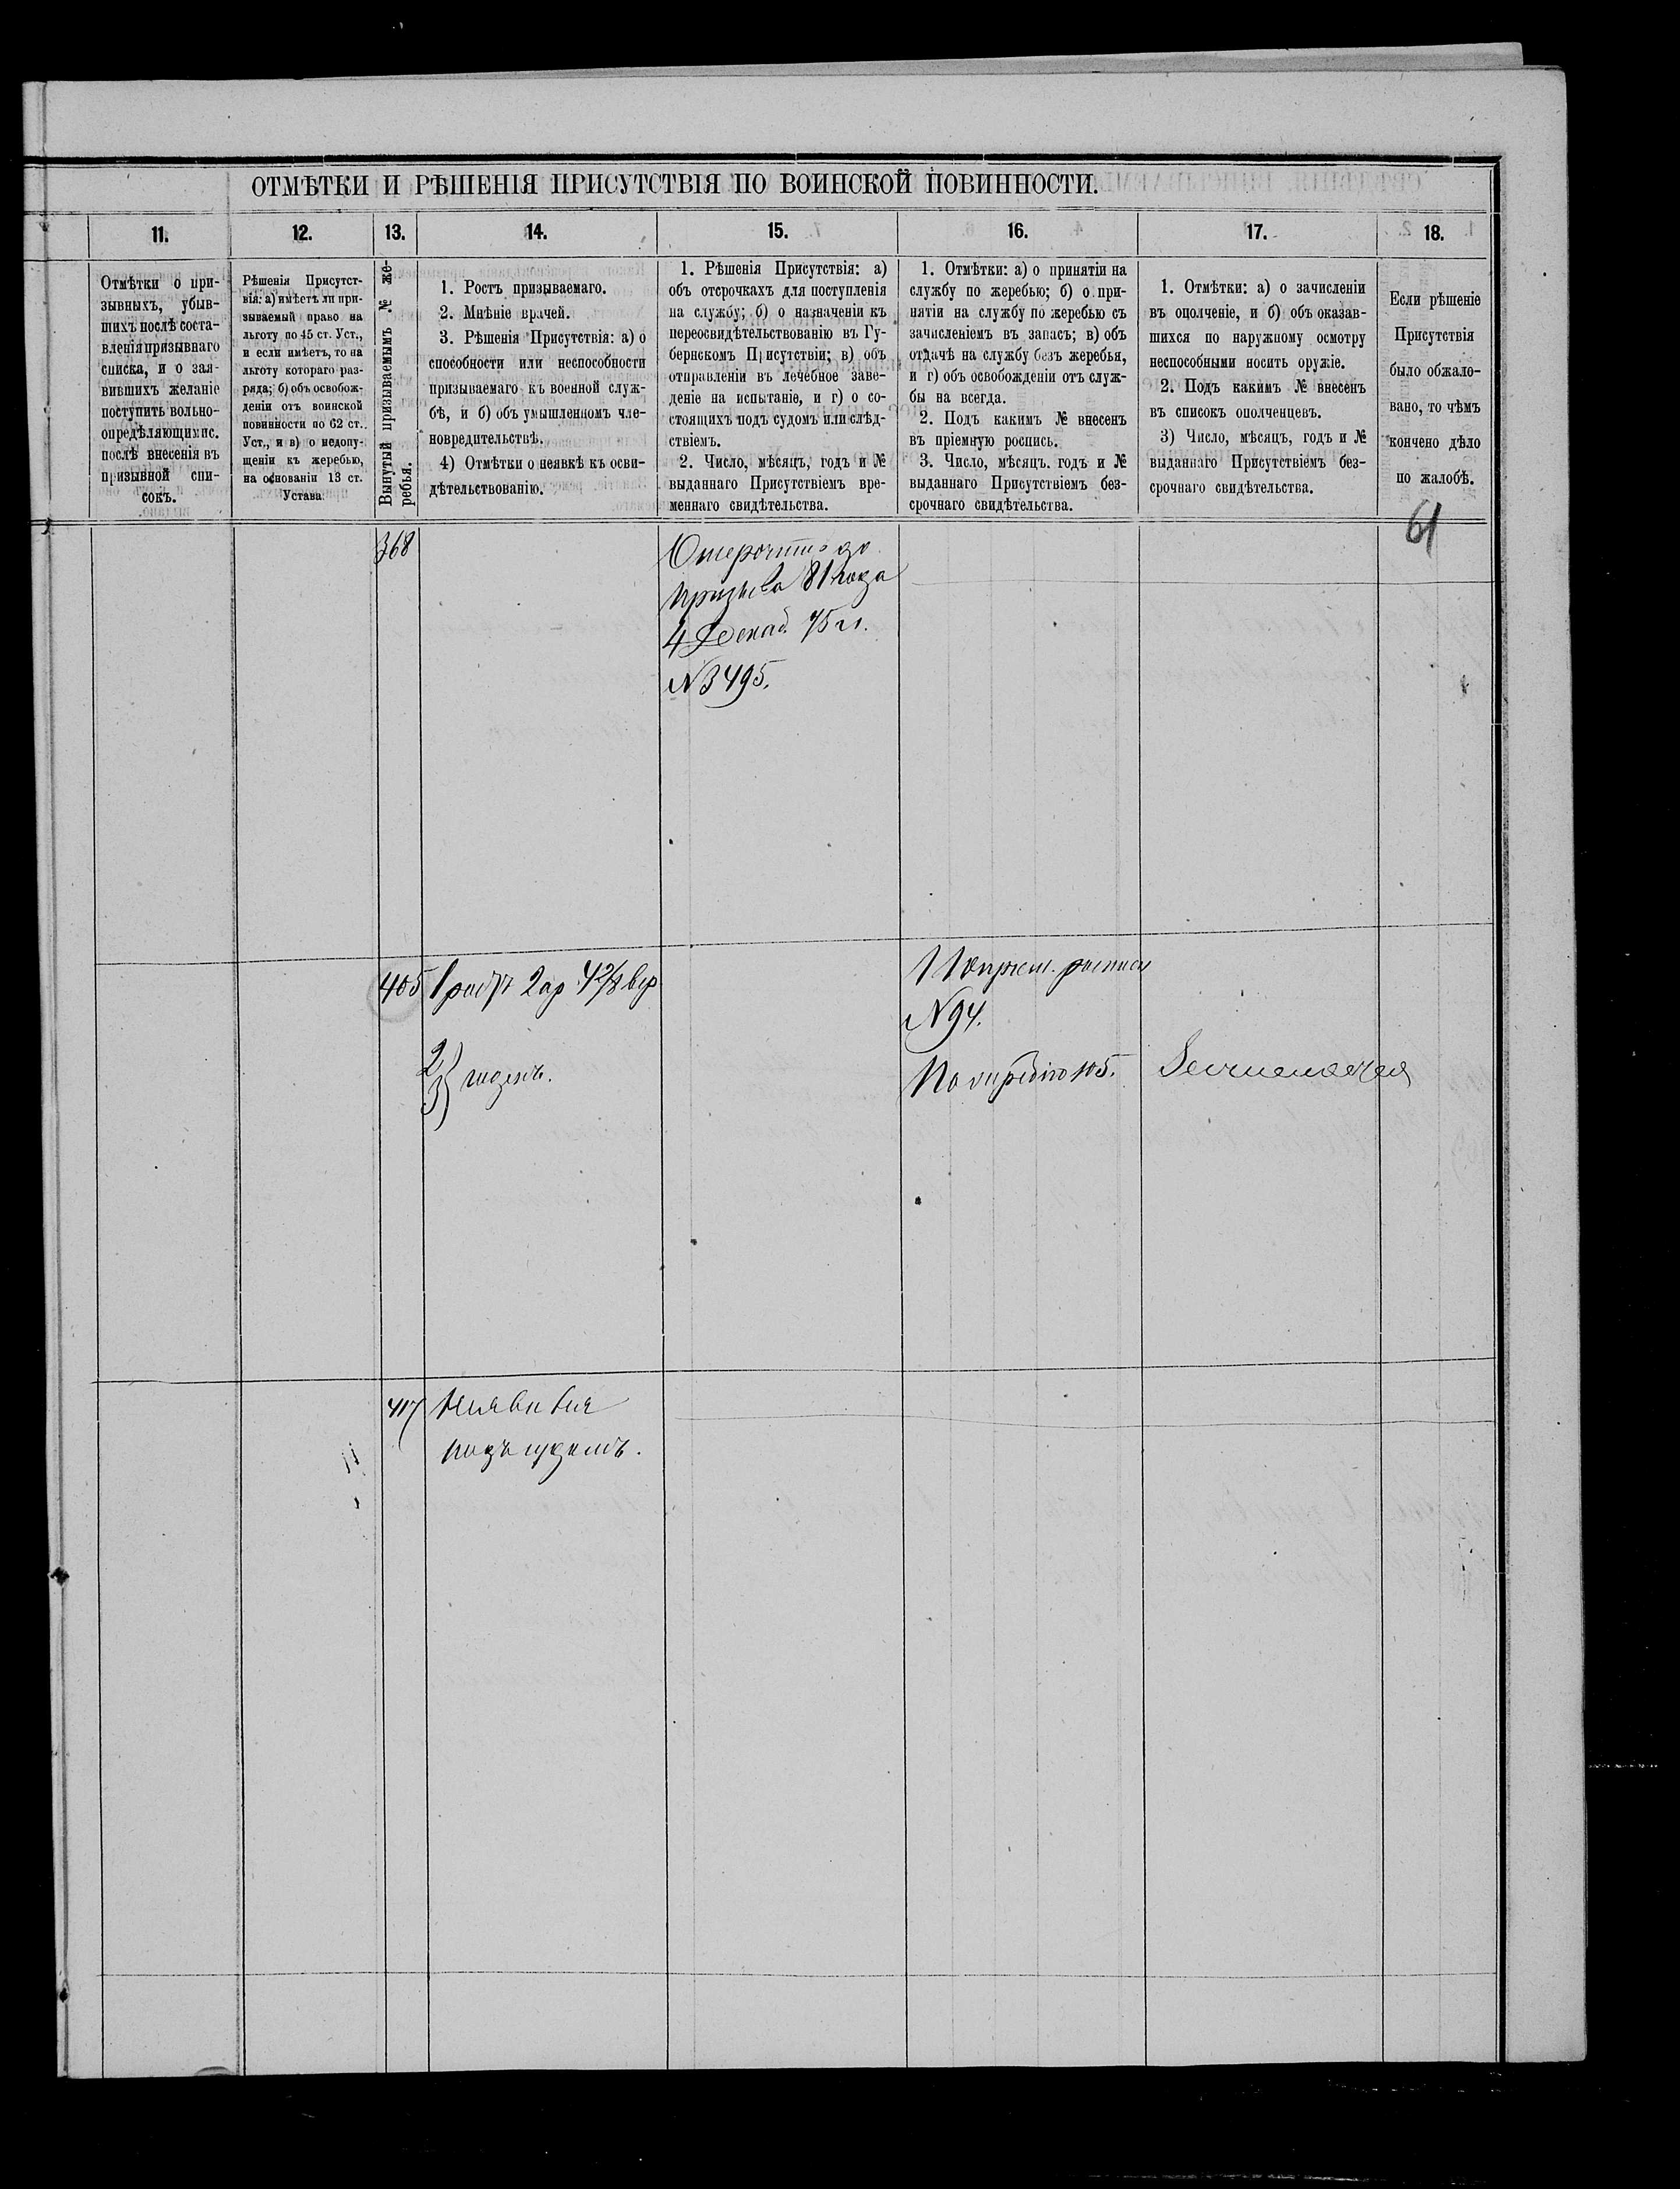 ОТМѢТКИ И РѢШЕНІЯ ПРИСУТСТВІЯ ПО ВОИНСКОЙ ПОВИННОСТИ.
11.
12.
13.
14.
15.
16.
17.
18.
Отмѣтки о при-
зывныхъ, убыв-
шихъ послѣ соста-
вленія призывнаго
списка, и о зая-
вившихъ желаніе
поступить вольно-
опредѣляющимис.
послѣ внесенія въ
призывной спи-
сокъ.
Рѣшенія Присутст-
вія: а) имѣетъ ли при-
зываемый право на
льготу по 45 ст. Уст.,
и если имѣетъ, то на
льготу котораго раз-
ряда; б) объ освобож-
деніи отъ воинской
повинности по 62 ст.
Уст., и в) о недопу-
щеніи къ жеребью,
на основаніи 13 ст.
Устава.
Вынутый призываемымъ № же-
ребья.
1. Ростъ призываемаго.
2. Мнѣніе врачей.
3. Рѣшенія Присутствія: а) о
способности или неспособности
призываемаго къ военной служ-
бѣ, и б) объ умышленномъ чле-
новредительствѣ.
4) Отмѣтки о неявкѣ къ осви-
дѣтельствованію.
1. Рѣшенія Присутствія: а)
объ отсрочкахъ для поступленія
на службу; б) о назначеніи къ
переосвидѣтельствованію въ Гу-
бернскомъ Присутствіи; в) объ
отправленіи въ лечебное заве-
деніе на испытаніе, и г) о со-
стоящихъ подъ судомъ или слѣд-
ствіемъ.
2. Число, мѣсяцъ, годъ и №
выданнаго Присутствіемъ вре-
меннаго свидѣтельства.
1. Отмѣтки: а) о принятіи на
службу по жеребью; б) о при-
нятіи на службу по жеребью съ
зачисленіемъ въ запасъ; в) объ
отдачѣ на службу безъ жеребья,
и г) объ освобожденіи отъ служ-
бы на всегда.
2. Подъ какимъ № внесенъ
въ пріемную роспись.
3. Число, мѣсяцъ. годъ и №
выданнаго Присутствіемъ без-
срочнаго свидѣтельства.
1. Отмѣтки: а) о зачисленіи
въ ополченіе, и б) объ оказав-
шихся по наружному осмотру
неспособными носить оружіе.
2. Подъ какимъ № внесенъ
въ списокъ ополченцевъ.
3) Число, мѣсяцъ, годъ и №
выданнаго Присутствіемъ без-
срочнаго свидѣтельства.
Если рѣшеніе
Присутствія
было обжало-
вано, то чѣмъ
кончено дѣло
по жалобѣ.
61
368
Отсрочить до
призыва 81 года
4 Декаб. 75 г.
№ 3495.
405
1 ростъ 2 ар 4 2/8 вер
2)
3) годенъ.
По прием. росписи
№ 94.
По жребію 405.
417
Неявився
подъ судомъ.